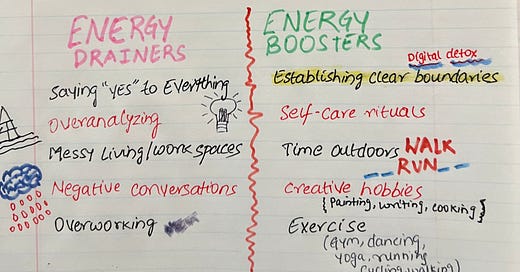 ENERGY
DRAINERS
Saying "yes" to Everything
Overanalyzing
Messy Living/work spaces
Negative conversations
Overworking
ENERGY
BOOSTERS
Digital detox
Establishing clear boundaries
Self-care rituals
Time outdoors WALK
RUN
Creative hobbies
{Painting, writing, cooking}
Exercise
(Gym, dancing,
yoga, running
cycling, walking)